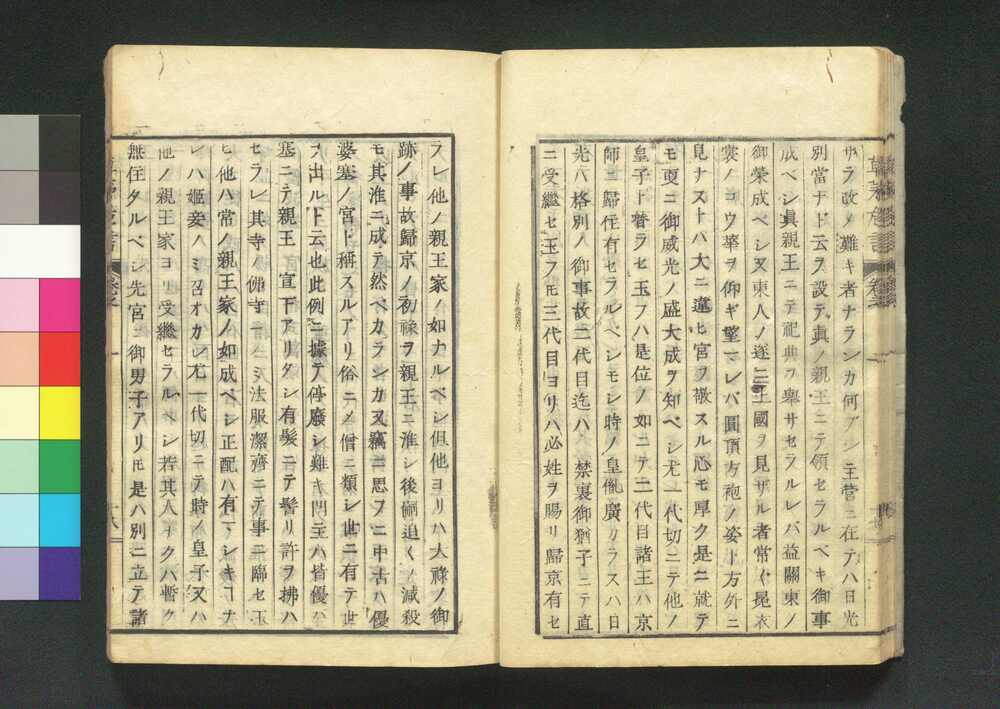 サラ改メ難キ者ナランカ何アシ主菅ニ在テハ日光
別當ナド云ヲ設テ真ノ親王ニテ領セラルベキ御事
成ベシ眞親王ニテ祀典ヲ擧サセラルレバ益關東ノ
御榮成ベシ又東人ノ遂ニ王國ヲ見ザル者常ハ冕衣
裳ノコウ華ヲ仰ギ望マレバ圓頂方袍ノ姿ト方外ニ
見ナストハ大ニ違ヒ宮ヲ敬スル心モ厚ク是ニ就テ
モ更ニ御威光ノ盛大成ヲ知ベシ尤一代切ニテ他ノ
皇子ト替ラセ玉フハ是位ノ如ニテ二代目諸王ハ京
師ニ歸住有セラルベシモシ時ノ皇胤廣カラスハ日
光ハ格別ノ御事故二代目迄ハ 禁裏御猶子ニテ直
ニ受繼セ玉フモ三代目ヨリハ必姓ヲ賜リ歸京有セ
ラレ他ノ親王家ノ如ナルベシ但他ヨリハ大祿ノ御
跡ノ事故歸京ノ初祿ヲ親王ニ准シ後嗣追〱ノ減殺
モ其准ニ成テ然ベカランカ又竊ニ思フニ中古ハ優
婆塞ノ宮ト稱スルアリ俗ニメ僧ニ類シ世ニ有テ世
ヲ出ルト云也此例ニ據テ停廢シ難キ門主ハ皆優ハ
塞ニテ親王 宣下アリタシ有髮ニテ髻リ許ヲ拂ハ
セラレ其寺ノ佛寺ニノミ法服潔齊ニテ事ニ臨セ玉
ヒ他ハ常ノ親王家ノ如成ベシ正配ハ有マシキヿナ
レハ姫妾ノミ召オカレ尤一代切ニテ時ノ皇子又ハ
他ノ親王家ヨリ受繼セラルベシ若其人ナクハ暫ク
無住タルベシ先宮ニ御男子アリモ是ハ別ニ立テ諸